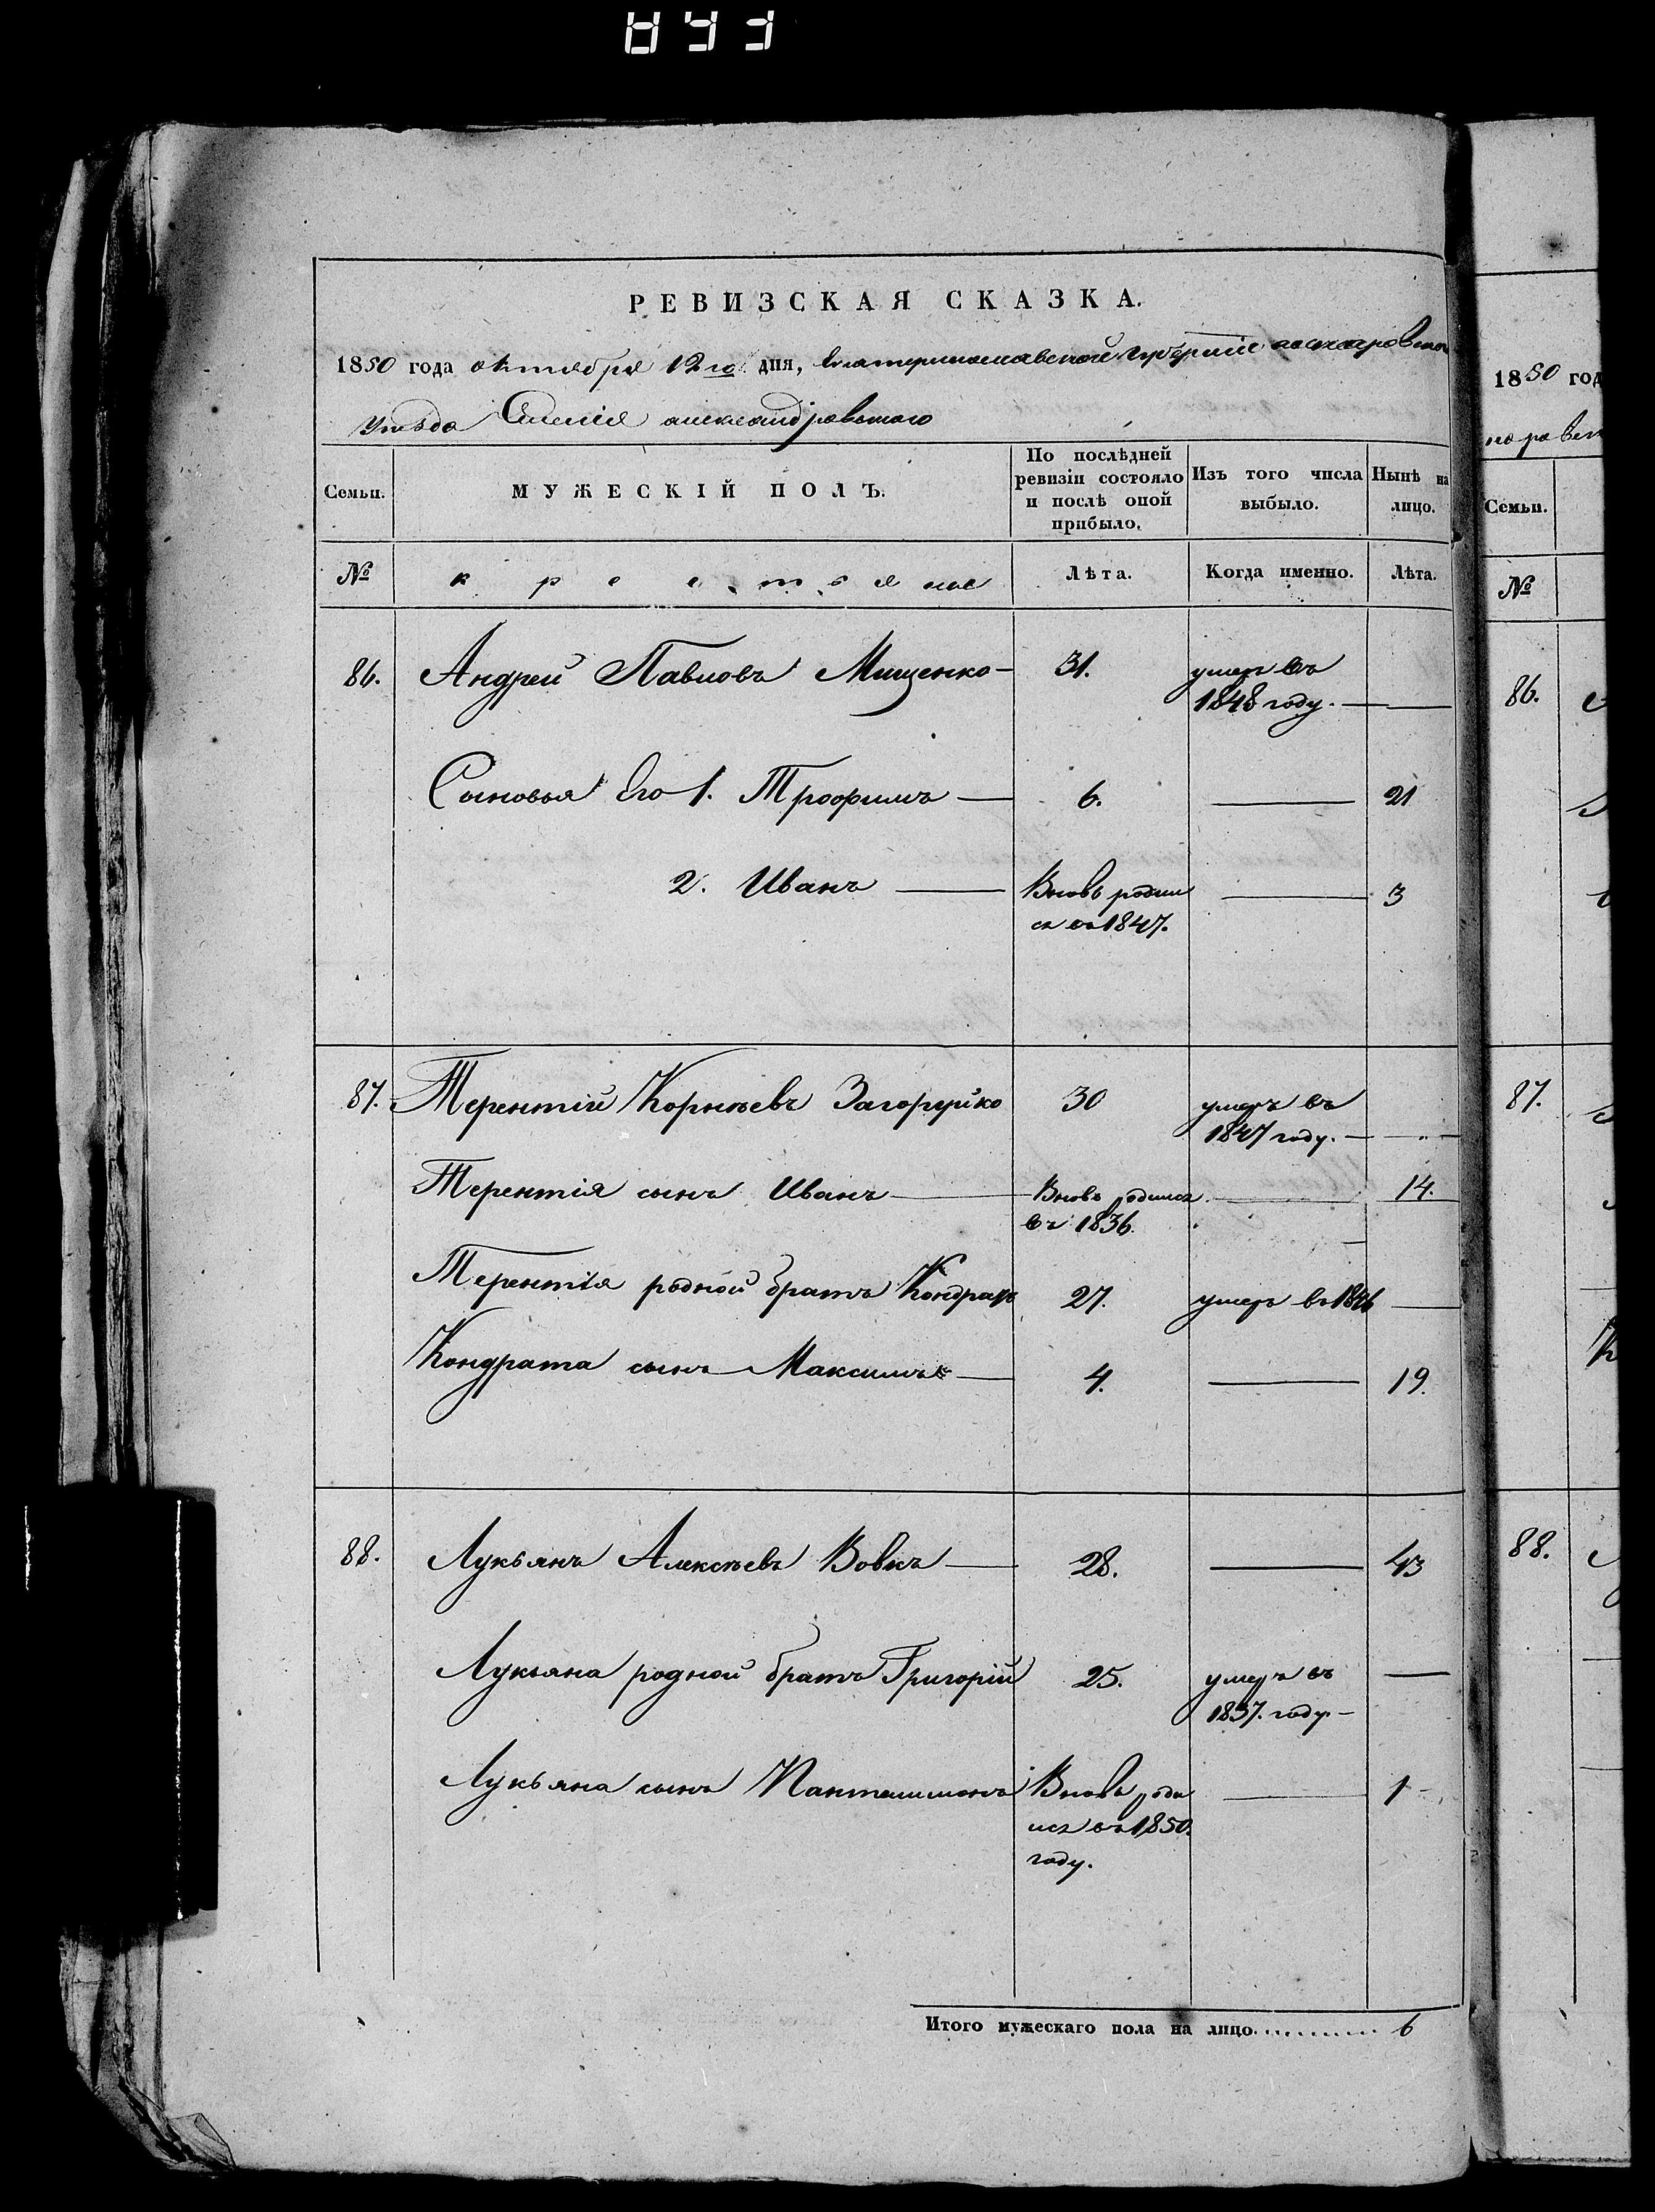 РЕВИЗСКАЯ СКАЗКА.
1850 года октября 12го дня, Екатеринославской губерніи
уезда Селенія александровскаго
Семьи. МУЖЕСКІЙ ПОЛЪ. По послѣдней ревизіи состояло и послѣ оной прибыло. Изъ того числа выбыло. Нынѣ на лицо.
№ крестьяне Лѣта. Когда именно. Лѣта.
86. Андрей Павловъ Мищенко 31. умеръ въ 1848 году.
Сыновья Его 1. Трофимъ 6. 21
2. Иванъ Вновь родился въ 1847. 3
87. Терентій Корнѣевъ Загоруйко 30 умеръ въ 1847 году.
Терентія сынъ Иванъ Вновь родился въ 1836. 14.
Терентія родной братъ Кондратъ 27. умеръ въ 1846
Кондрата сынъ Максимъ 4. 19.
88. Лукьянъ Алексѣевъ Вовкъ 28. 43
Лукьяна родной братъ Григорій 25. умеръ въ 1837. году
Лукьяна сынъ Пантелимонъ Вновь родился въ 1850. году. 1
Итого мужескаго пола на лицо 6
1850 год
Семьи.
№
86.
87.
88.